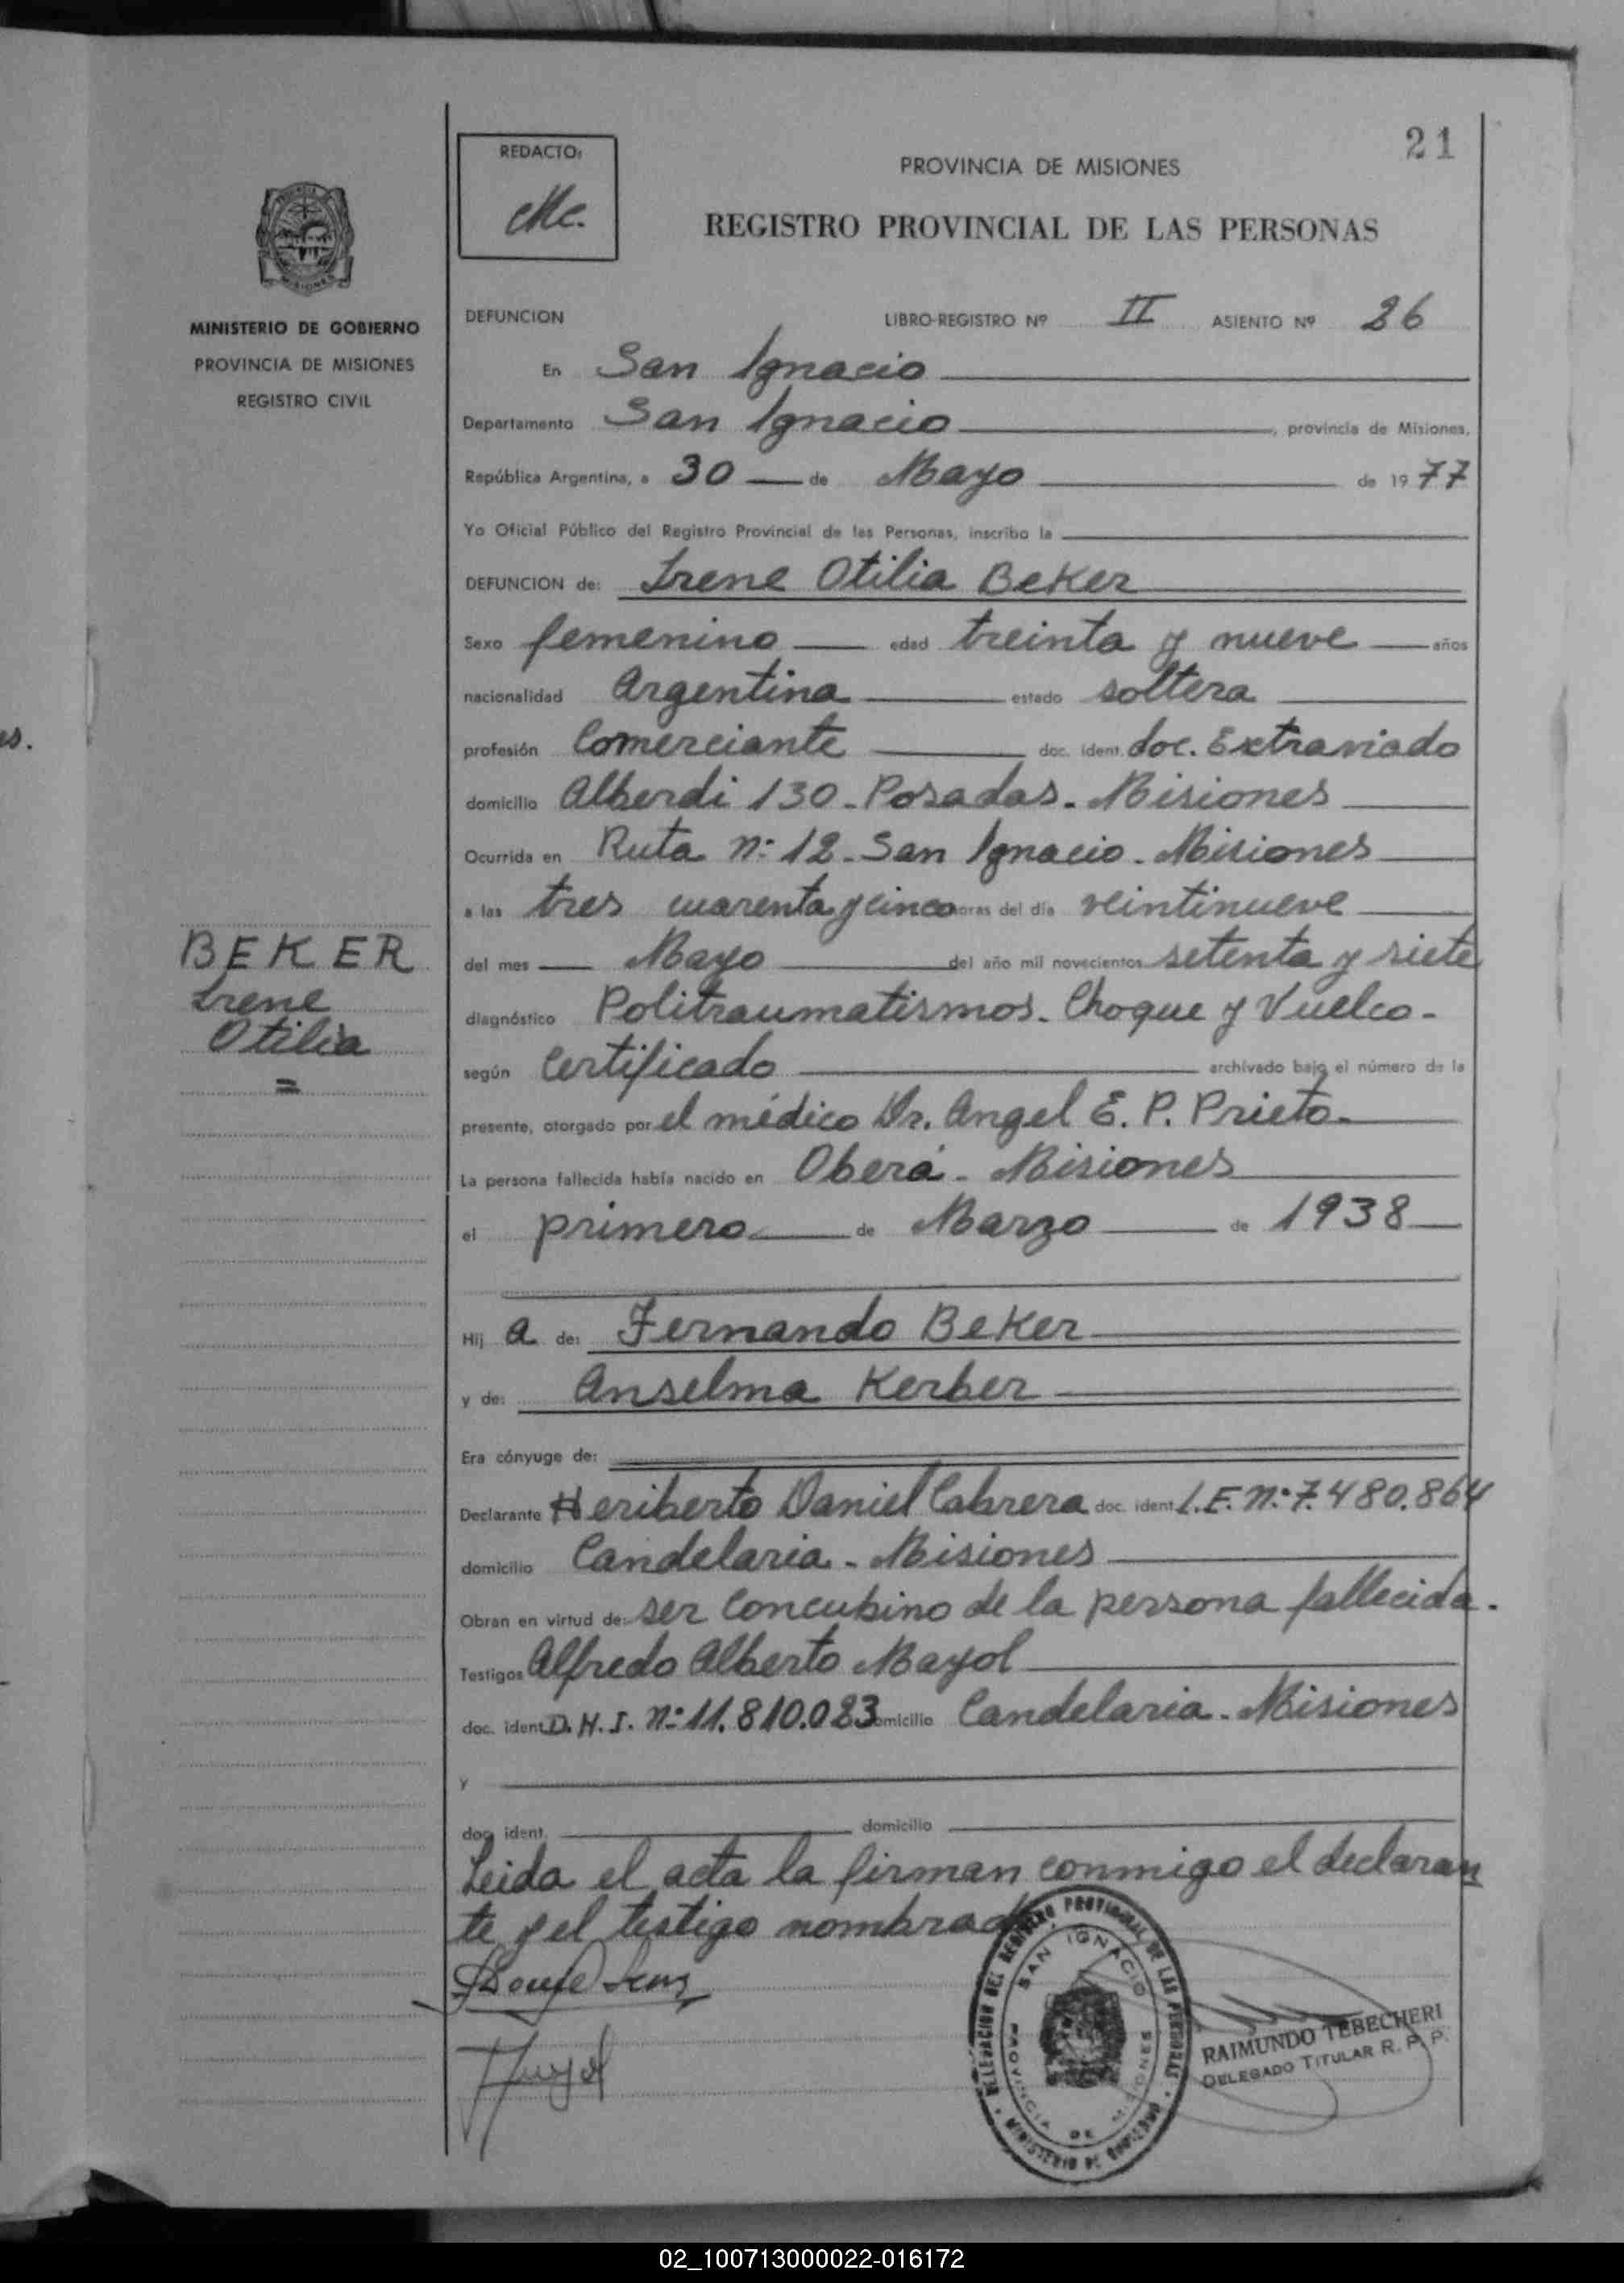 21
REDACTO:
Mc.
PROVINCIA DE MISIONES
REGISTRO PROVINCIAL DE LAS PERSONAS
MINISTERIO DE GOBIERNO
PROVINCIA DE MISIONES
REGISTRO CIVIL
DEFUNCION LIBRO-REGISTRO Nº II ASIENTO Nº 26
En San Ignacio
Departamento San Ignacio, provincia de Misiones,
República Argentina, a 30 de Mayo de 1977
Yo Oficial Público del Registro Provincial de las Personas, inscribo la
DEFUNCION de: Irene Otilia Beker
Sexo femenino edad treinta y nueve años
nacionalidad Argentina estado soltera
es.
profesión Comerciante doc. ident. doc. Extraviado
domicilio Alberdi 130 - Posadas - Misiones
Ocurrida en Ruta n: 12 - San Ignacio - Misiones
a las tres cuarenta y cinco horas del día veintinueve
BEKER
Irene
Otilia
=
del mes Mayo del año mil novecientos setenta y siete
diagnóstico Politraumatismos. Choque y Vuelco -
según Certificado archivado bajo el número de la
presente, otorgado por el médico Dr. Angel E. P. Prieto.
La persona fallecida había nacido en Oberá - Misiones
el primero de Marzo de 1938
Hij a de: Fernando Beker
y de: Anselma Kerber
Era cónyuge de:
Declarante Heriberto Daniel Cabrera doc. ident. L.E. n: 7.480.864
domicilio Candelaria - Misiones
Obran en virtud de: ser Concubino de la persona fallecida.
Testigos Alfredo Alberto Mayol
doc. ident. D.N.I. n: 11.810.023 domicilio Candelaria - Misiones
y
doc. ident. domicilio
Leida el acta la firman conmigo el declaran
te y el testigo nombrado
DELEGACION DEL REGISTRO PROVINCIAL DE LAS PERSONAS
MINISTERIO DE GOBIERNO
SAN IGNACIO
PROVINCIA DE MISIONES
RAIMUNDO TEBECHERI
DELEGADO TITULAR R. P. P.
02_100713000022-016172